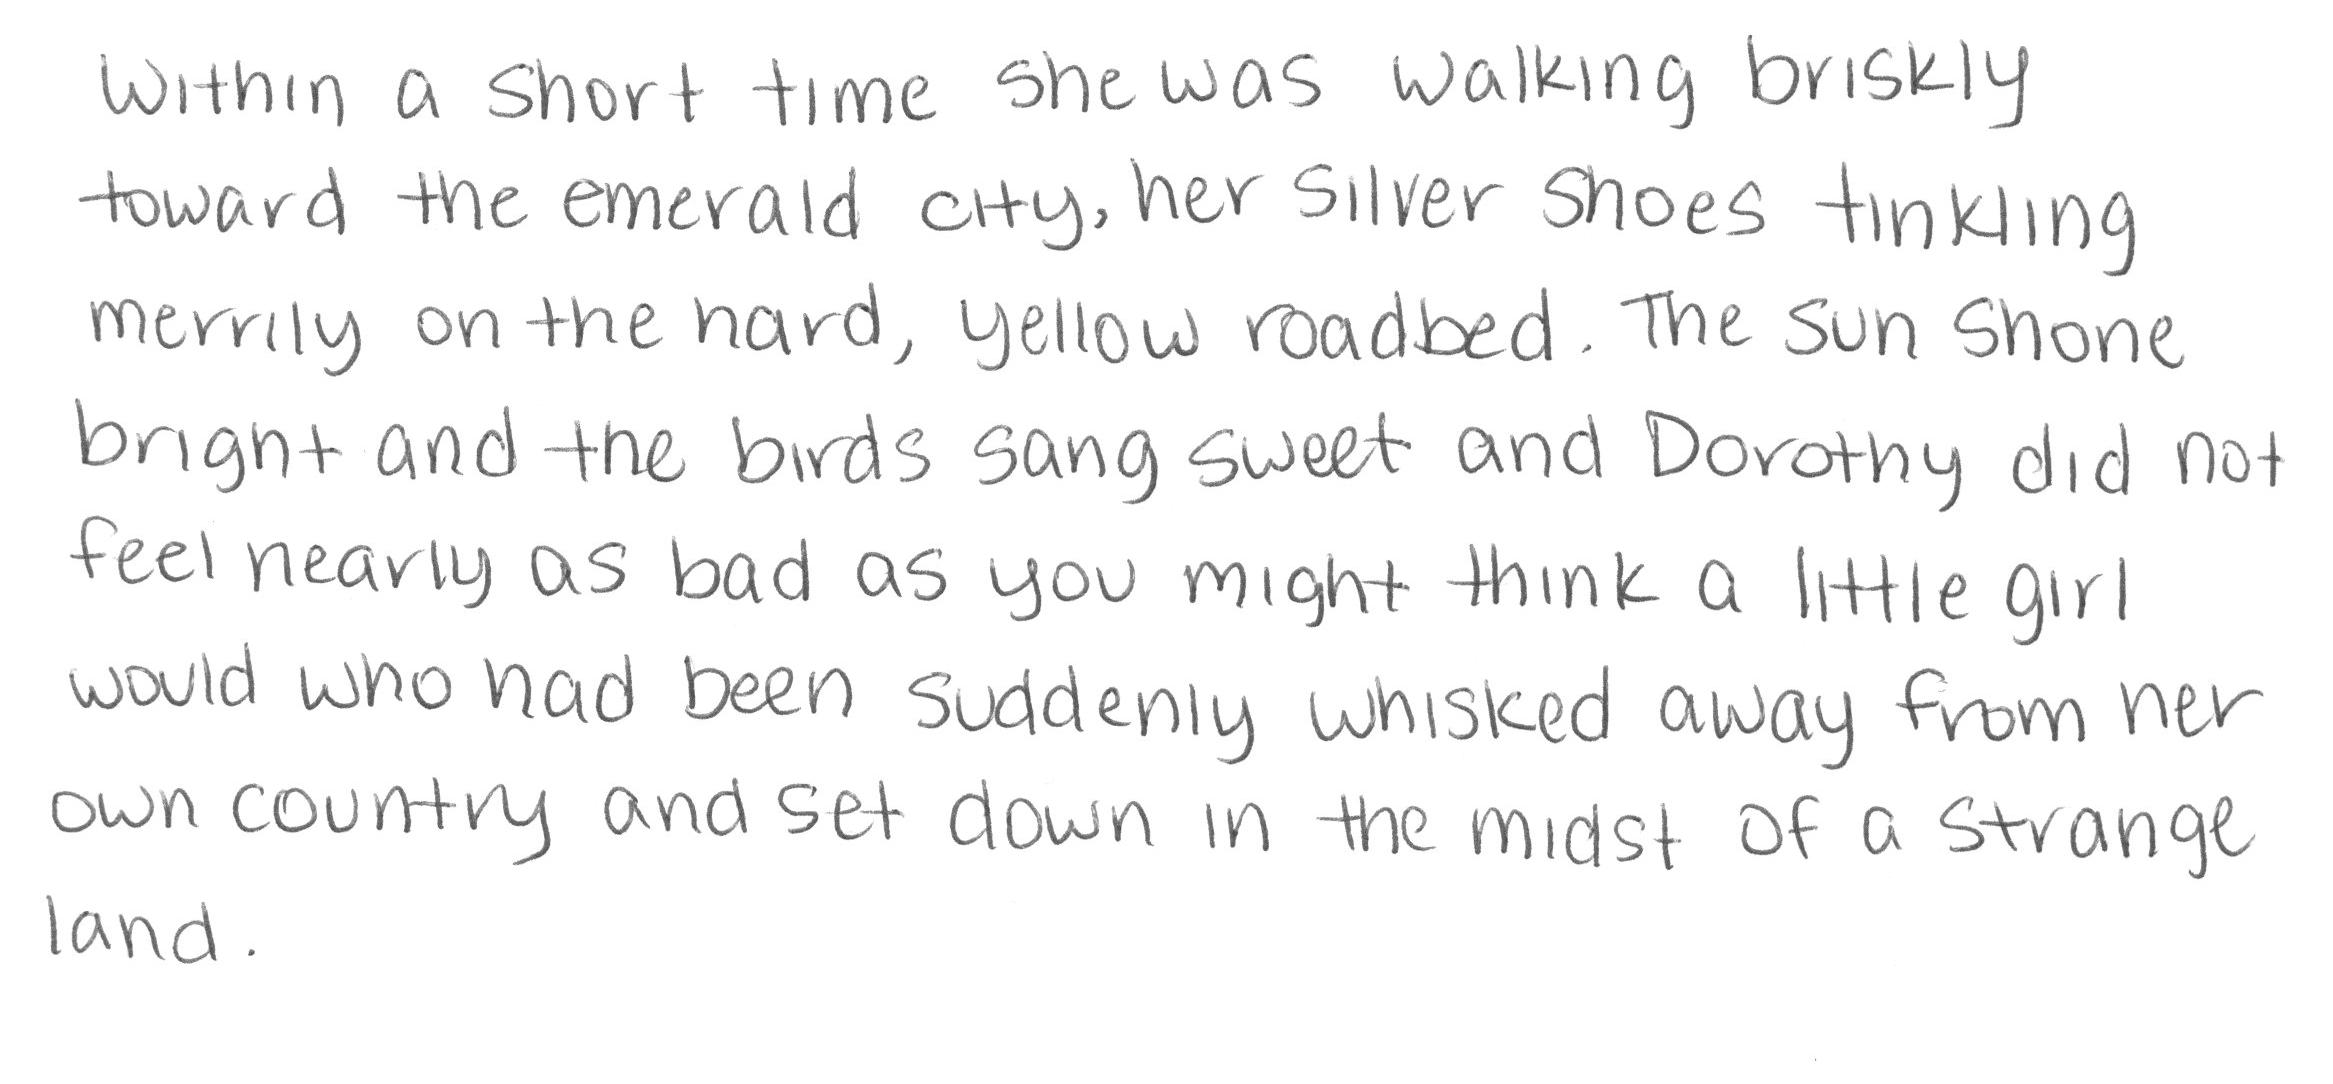 Within a short time she was walking briskly
toward the emerald city, her silver shoes tinkling
merrily on the hard, yellow roadbed. The sun shone
bright and the birds sang sweet and Dorothy did not
feel nearly as bad as you might think a little girl
would who had been suddenly whisked away from her
own country and set down in the midst of a strange
land.